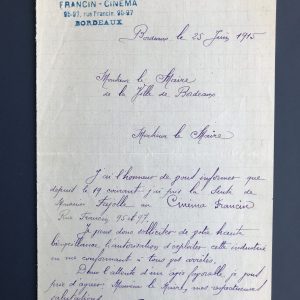 FRANCIN - CINEMA
95-97, rue Francin, 95-97
BORDEAUX
Bordeaux le 25 Juin 1915
Monsieur le Maire
de la Ville de Bordeaux
Monsieur le Maire
J'ai l'honneur de vous informer que
depuis le 19 courant j'ai pris la Suite de
Monsieur Fayolle au Cinéma Francin
Rue Francin, 95 et 97.
Je viens vous solliciter de votre haute
bienveillance l'autorisation d'exploiter cette industrie
en me conformant à tous vos arrêtés.
Dans l'attente d'un avis favorable, je vous
prie d'agréer Monsieur le Maire, mes respectueuses
salutations.